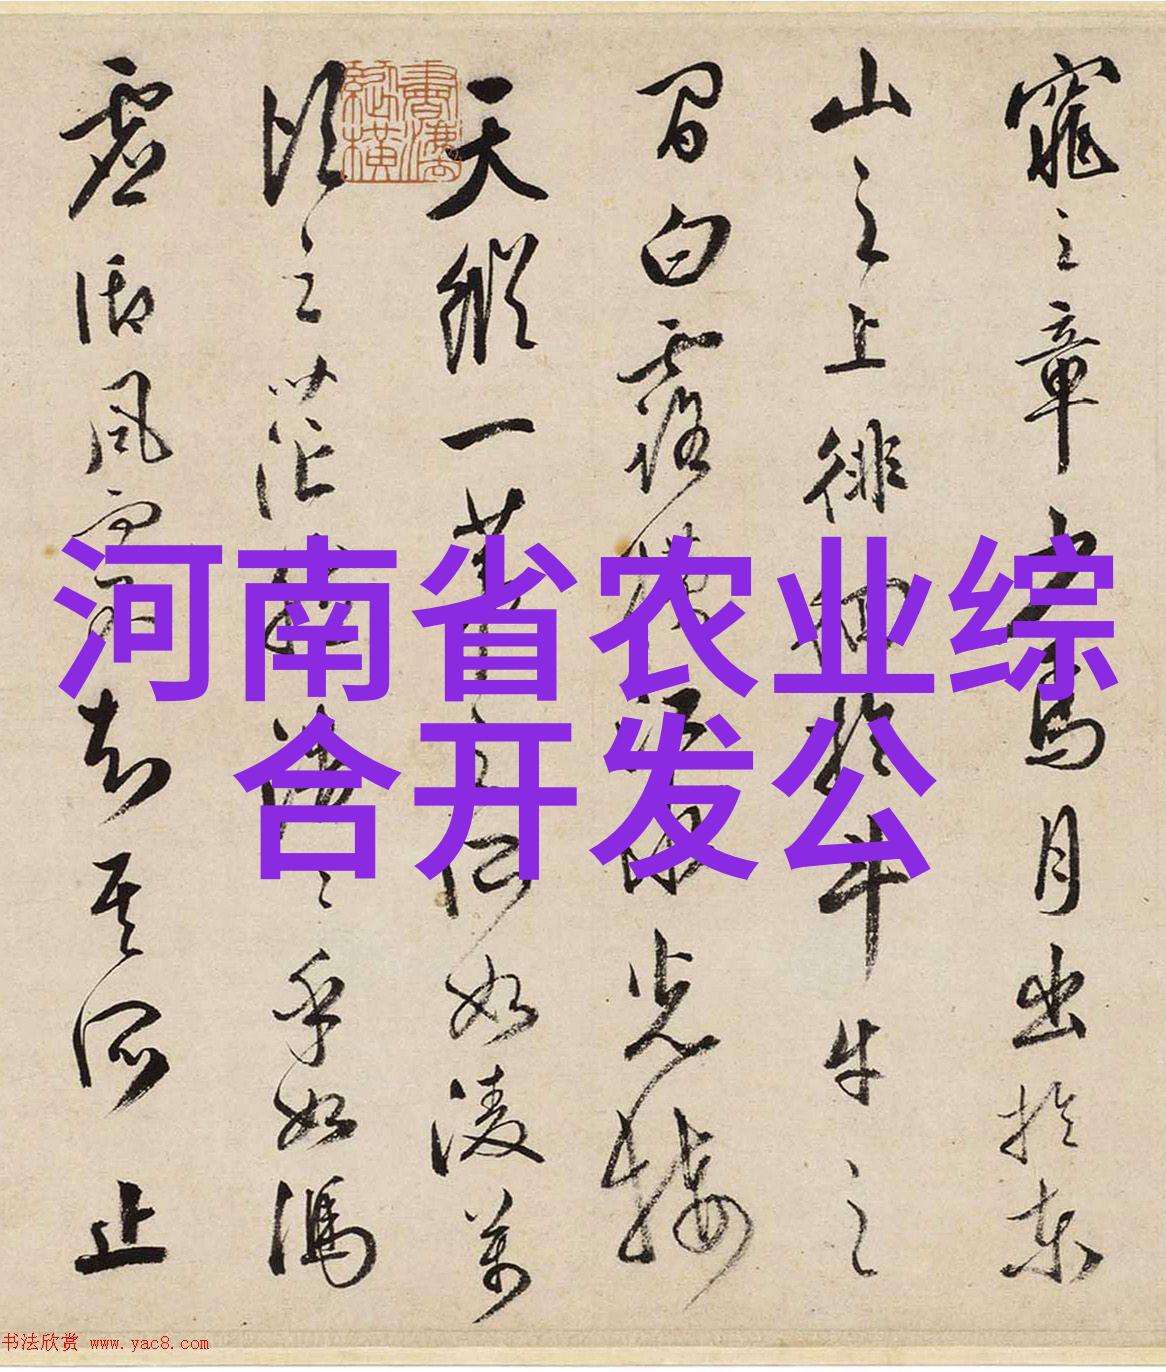 窕之章少焉月出於東
山之上徘徊於斗牛之
間白露橫江水光接
天縱一葦之所如淩萬
頃之茫然浩〻乎如馮
虛御風而不知其所止
河南省农业综
合开发公
书法欣赏 www.yac8.com